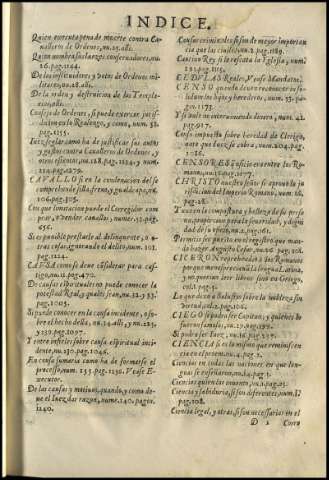 INDICE.
Quien executa pena de muerte contra Ca-
valleros de Ordenes, nu.25.alli.
Quien nombra sus Juezes conservadores, nu.
26.pag.1244.
De los instituidores y votos de Ordenes mi-
litares, nu.28.alli.
De la orden y destruicion de los Temple-
rios, alli.
Consejo de Ordenes, si puede exercer jurisdi-
cion en lo Realengo, y como, num.52.
pag.1255.
Juez seglar como ha de justificar sus autos
y gastos contra Cavallero de Ordenes, y
otros essentos, nu.128.pag.1274.y num.
214.pag.1279.
CAVALLOS en la condenacion del se
comprehende silla, freno, y gualdrapa, nu.
106.pag.305.
Con que limitacion puede el Corregidor com
prar, o vender cavallos, numer.32.pag.
654.
Si es punible prestarle al delinquente, o a
otras cosas, ignorando el delito, num.102.
pag.1124.
CAUSA como se deve considerar para cas-
tigo, nu.12.pag.470.
De causas espirituales no puede conocer la
potestad Real, y quales sean, nu.32.y 33.
pag.1085.
Si puede conocer en la causa incidente, o so-
bre el hecho della, nu.34.alli, y nu.125.
y 130.pag.1097.
Y entre infieles sobre causa espiritual incide-
nte, nu.130.pag.1046.
En causa sumaria como ha de formarse el
processo, num.255.pag.1236. Vease E-
xecutor.
De las causas y motivos, quando, y como de-
ve el Juez dar razon, nume.140.pagin.
1240.
Causas criminales si son de mayor importan
cia que las civiles, nu.2.pag.1189.
Caucion Rey si la rescata la Yglesia, num.
121.pag.1115.
CEDULAS Reales, Vease Mandatos.
CENSO quando deven reconocer in-
solidum los hijos y herederos, num.33.pa-
gin.1175.
Y si vale no interviniendo dinero, nu.42.
pag.917.
Censo impuesto sobre heredad de Clerigo,
ante que Juez se cobra, nu.204.pag.
1126.
CENSORES su oficio era entre los Ro-
manos, nu.16.pag.1077.
CHRISTO nuestro señor si aprovó la ju
risdicion del Imperio Romano, nu.16.
pag.261.
Tuvo la compostura y belleza de su perso
na, proporcionada para la severidad, y dig
dad de su oficio, nu.9.pag.261.
Permitio ser puesto en el registro que man-
do hazer Augusto Cesar, nu.16.pag.261.
CICERON reprehendio a los Romanos
porque menospreciavan la lengua Latina,
y no querian leer libros sino en Griego,
col.1.pag.5.
Lo que dixo a Salustio sobre la nobleza sin
virtud, col.2.pag.106.
CIEGO si puede ser Capitan, y quienes lo
fueron siendolo, nu.27.pag.199.
Si podra ser Juez, nu.26.pag.327.
CIENCIA si es lo mismo que venimos en
ciencia en epist.pag.2.
Ciencias en todas las naciones en que len-
guas se enseñaron, nu.14.pag.5.
Ciencias quien las invento, nu.1.pag.25.
Ciencia y sabiduria, si son diferentes, num.17
pag.108.
Ciencia legal, y otras, si son necessarias en el
D 2 Corre